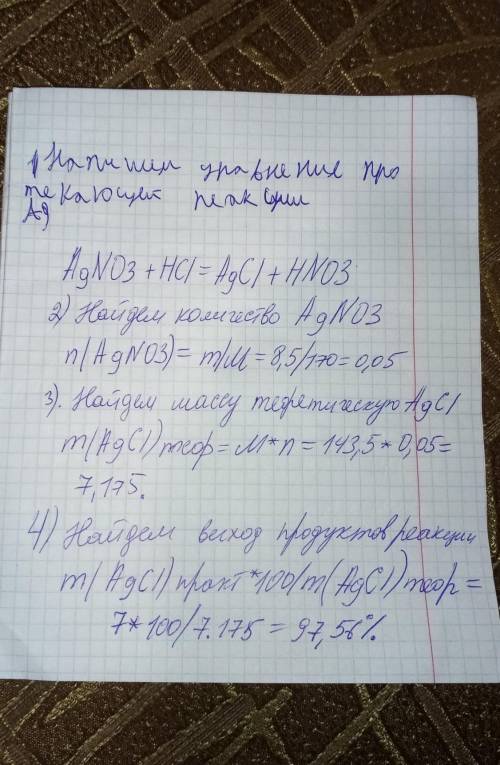 1) Напишем уравнение про
текающей реакции
Ag
AgNO3 + HCl = AgCl + HNO3
2) Найдем количество AgNO3
n(AgNO3) = m/M = 8,5/170 = 0,05
3). Найдем массу теоретическую AgCl
m(AgCl) теор = M*n = 143,5 * 0,05 =
7,175.
4) Найдем выход продуктов реакции
m(AgCl) практ *100/m(AgCl) теор =
7*100/7.175 = 97,56%.